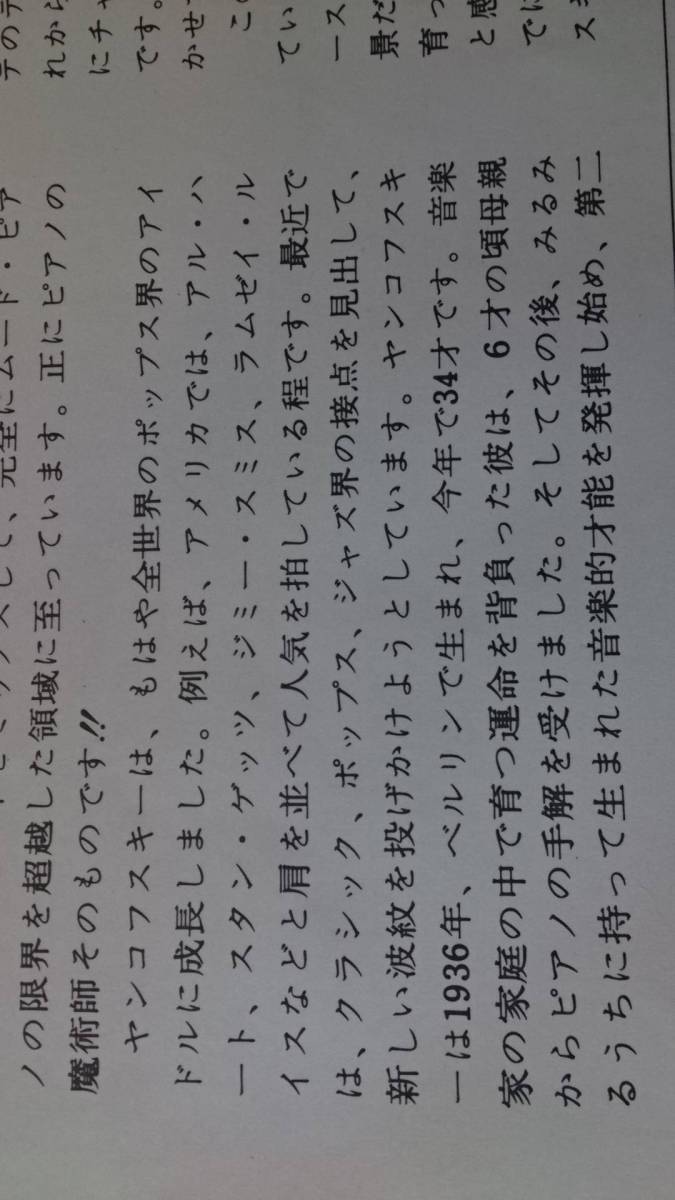 ノの限界を超越した領域に至っています。正にピアノの
魔術師そのものです!!
ヤンコフスキーは、もはや全世界のポップス界のアイ
ドルに成長しました。例えば、アメリカでは、アル・ハ
ート、スタン・ゲッツ、ジミー・スミス、ラムゼイ・ル
イスなどと肩を並べて人気を拍している程です。最近で
は、クラシック、ポップス、ジャズ界の接点を見出して、
新しい波紋を投げかけようとしています。ヤンコフスキ
ーは1936年、ベルリンで生まれ、今年で34才です。音楽
家の家庭の中で育つ運命を背負った彼は、6才の頃母親
からピアノの手解を受けました。そしてその後、みるみ
るうちに持って生まれた音楽的才能を発揮し始め、第二
れから
にチャ
です。
かせ
この
てい
ース
景だ
育っ
と感
では
スキ